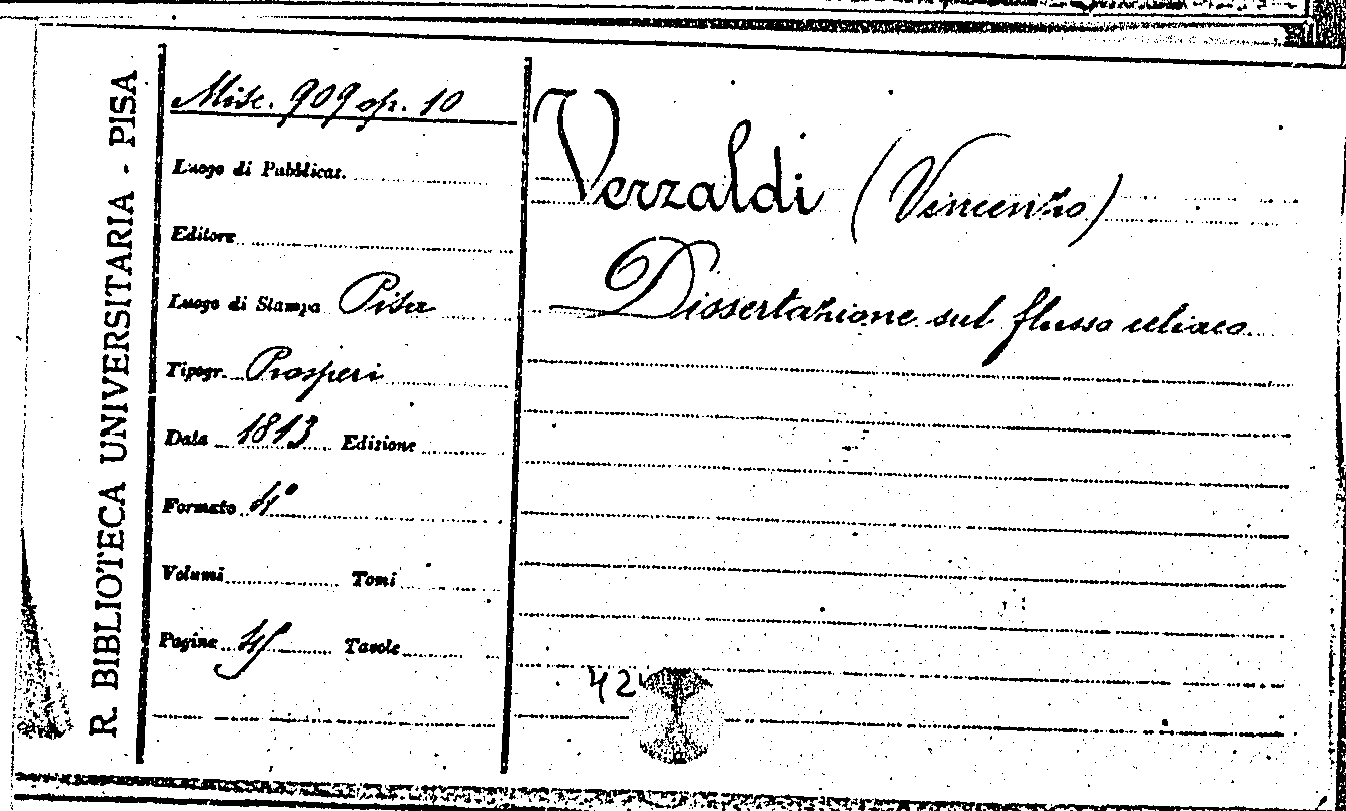 R. BIBLIOTECA UNIVERSITARIA - PISA
Misc. 909 op. 10
Luogo di Pubblicaz.
Editore
Luogo di Stampa Pisa
Tipogr. Prosperi
Data 1813 Edizione
Formato 4°
Volumi Tomi
Pagine 45 Tavole
Verzaldi (Vincenzo)
Dissertazione sul flusso celiaco